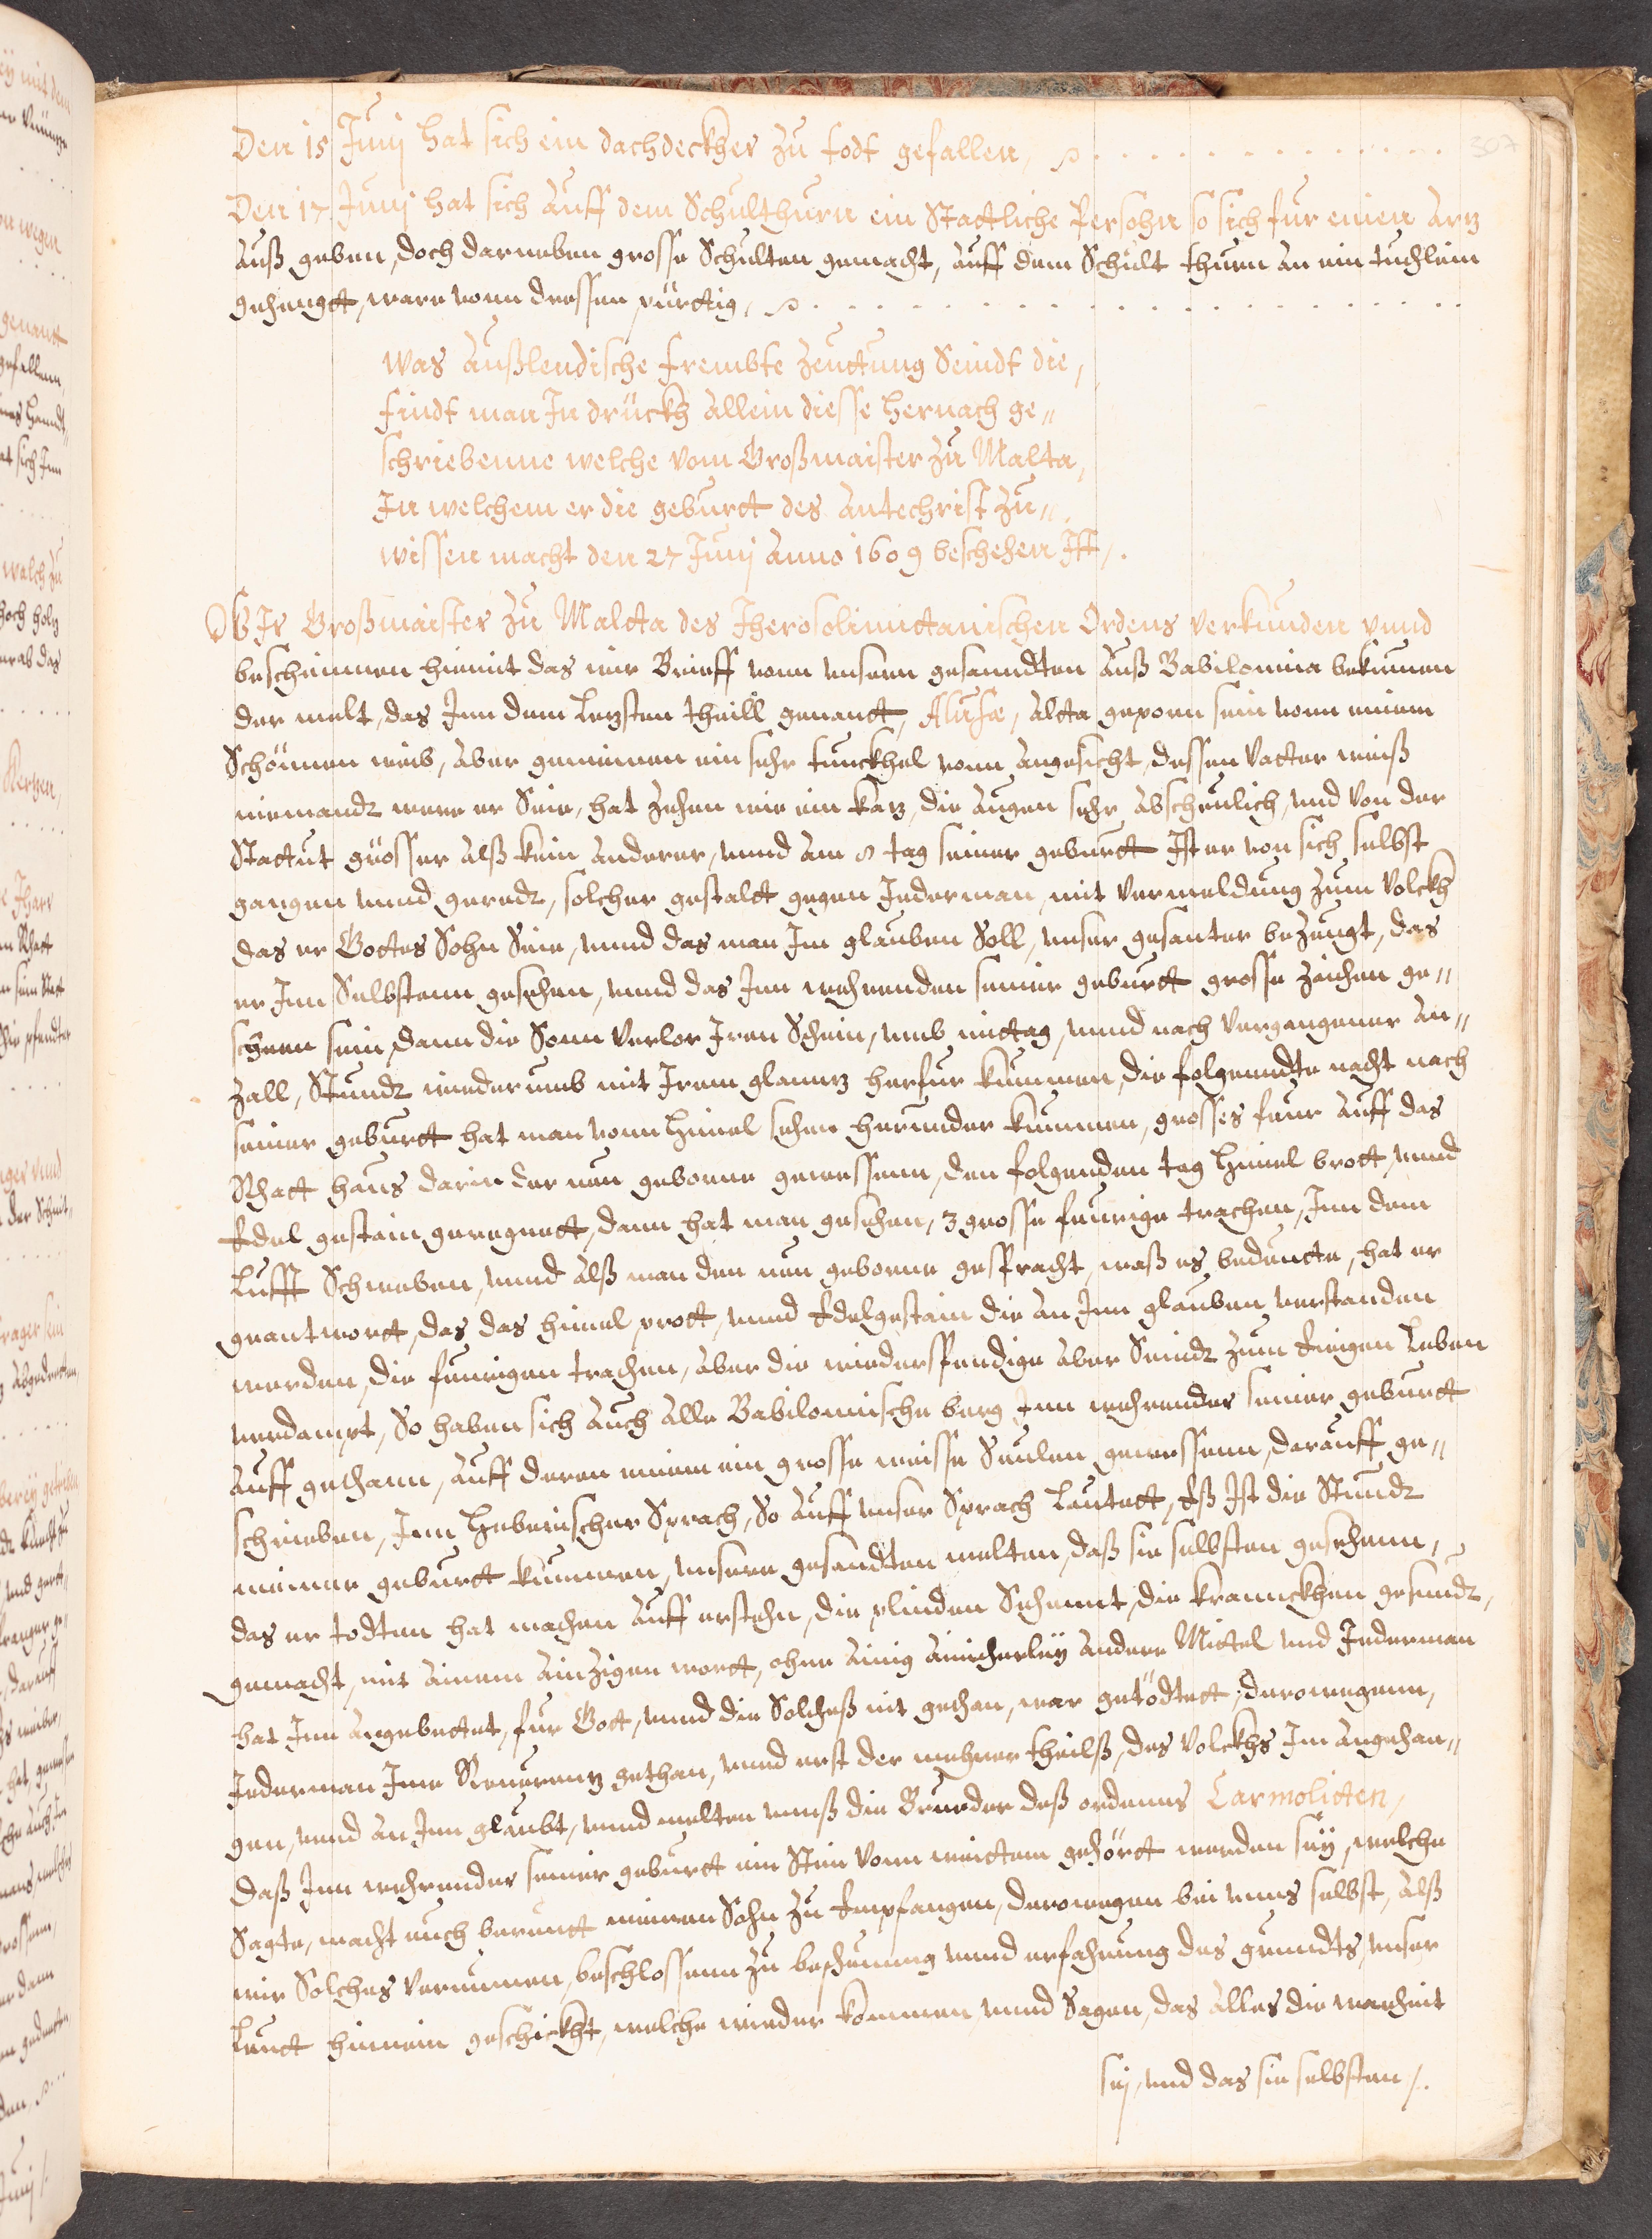 307
Den 15 Junij hat sich ein dachdeckher zu todt gefallen,
Den 17 Junij hat sich Auff dem Schulthurn ein Stattliche Persohn so sich fur einen Arz
Auß geben, doch darneben grosse Schulten gemacht, Auff dem Schult thurn An ein tuchlein
gehengtt, ware vonn dressen pürttig,
Was Außlendische frembte Zeuttung Seindt die,
findt man In drückh Allein diesse hernach ge„
schriebenne welche vom Großmaister zu Malta,
In welchem er die geburtt des Antechrist zu„
wissen macht den 27 Junij Anno 1609 beschehen Ist/.
WIr Großmaister zu Maltta des Jherosolimittanischen Ordens verkunden vnnd
bescheinnen hiemit das wir Brieff vonn vnsern gesanndten Auß Babilonnia bekumen
der welt, das Inn dem Lezsten theill genantt, Alusæ, Altta geporn sein vonn einem
Schönnen weib, Aber gemeinen ein sehr tunckhel vonn Angesicht, dessen Vatter weiß
niemandt were er Seie, hat Zehen wie ein karz, die Augen sehr Abscheulich, vnd von der
Stattut grösser Alß kein Anderer, vnnd Am 8 tag seiner geburtt Ist er von sich selbst
gangen vnnd geredt, solcher gestaltt gegen Jederman, mit vermeldung zum Volckh
das er Gottes Sohn Seie, vnnd das man Im glauben Soll, vnser gesanter bezeugt, das
er Inn Selbstenn gesehen, vnnd das Inn wehrenden seiner geburtt grosse zeichen ge„
scheen sein, dann die Sonn Verlor Iren Schein, vmb mittag, vnnd nach vergangener An„
zall, Stundt wiederumb mit Irem glanntz herfur kummen, die folgenndte nacht nach
seiner geburtt hat man vonn himel sehen herunder kummen, grosses feur Auff das
Rhatt haus darin der neu geborne gewessenn, den folgenden tag himel brott, vnnd
Edel gestain geregnett, dann hat man gesehen, 3 grosse feurige trachen, Inn dem
Lufft Schweben, vnnd Alß man den neu geborne gesfracht, waß es bedeutte, hat er
geantwortt, das das himel prott, vnnd Edelgestain die An Inn glauben, verstanden
werden, die feurigen trachen, Aber die wiederspendige Aber Seindt zum Ewigen Leben
verdampt, So haben sich Auch Alle Babilonnische berg Inn wehrender seiner geburtt
Auff gethann, Auff deren einem ein grosse weisse Seulen gewessenn, darauff ge„
schrieben, Inn Hebreischer Sprach, So Auff vnser Sprach Lautett, Eß Ist die Stundt
meiner geburtt kummen, vnsere gesandten melten, daß sie selbsten gesehenn,
das er todten hat machen Auff erstehn, die plinden Sehennt, die kranckhen gesundt,
gemacht, mit Ainem Ainzigen wortt, ohne Ainig Ainicherley Andere Mittel vnd Jederman
hat Inn Angebettet, fur Gott, vnnd die Solcheß nit gethan, war getödtett, derowegenn,
Jederman Ime Reverentz gethan, vnnd erst der mehrer theilß, des Volckhs Im Angehan„
gen, vnnd An Inn glaubt, vnnd melten vnnß die Brueder deß ordenns Carmolitten,
daß Inn wehrender seiner geburtt ein Stim vonn weittem gehörtt worden sey, welche
Sagte, macht euch bereitt meinen Sohn zu Empfangen, derowegen bei vnns selbst, Alß
wir Solches vernumen, beschlossenn zu beschauung vnnd erfahrung des grundts, vnser
Leutt hinein geschickht, welche wieder kommen, vnnd Sagen, das Alles die warheit
sej, vnd das sie selbsten/.